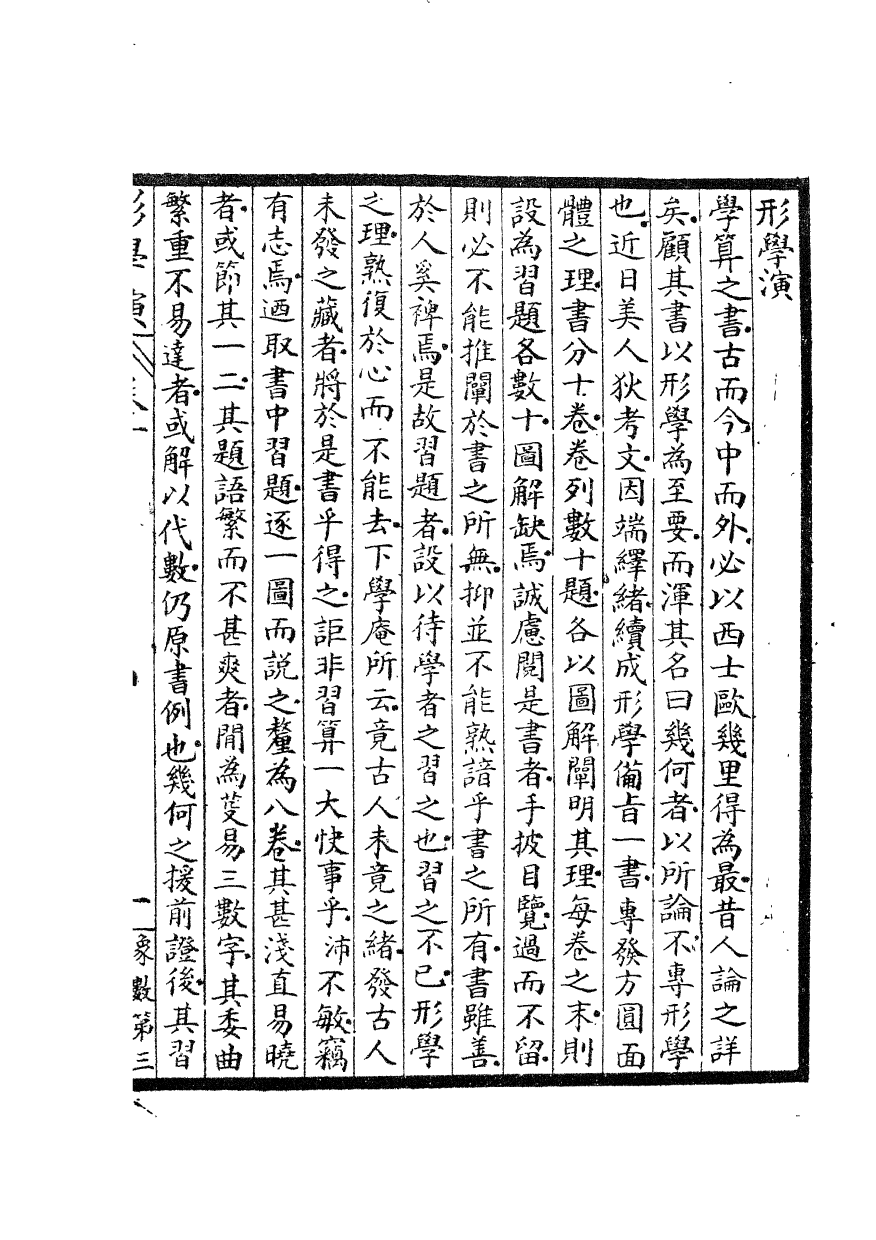 形學演
學算之書古而今中而外必以西士歐幾里得為最昔人論之詳
矣顧其書以形學為至要而渾其名曰幾何者以所論不專形學
也近日美人狄考文因端繹緒續成形學備旨一書專發方圓面
體之理書分十卷卷列數十題各以圖解闡明其理每卷之末則
設為習題各數十圖解缺焉誠慮閱是書者手披目覽過而不留
則必不能推闡於書之所無抑並不能熟諳乎書之所有書雖善
於人奚裨焉是故習題者設以待學者之習之也習之不已形學
之理熟復於心而不能去下學庵所云竟古人未竟之緒發古人
未發之藏者將於是書乎得之詎非習算一大快事乎沛不敏竊
有志焉迺取書中習題逐一圖而說之釐為八卷其甚淺直易曉
者或節其一二其題語繁而不甚爽者間為蔓易三數字其委曲
繁重不易達者或解以代數仍原書例也幾何之援前證後其習
形學演 一 象數第三